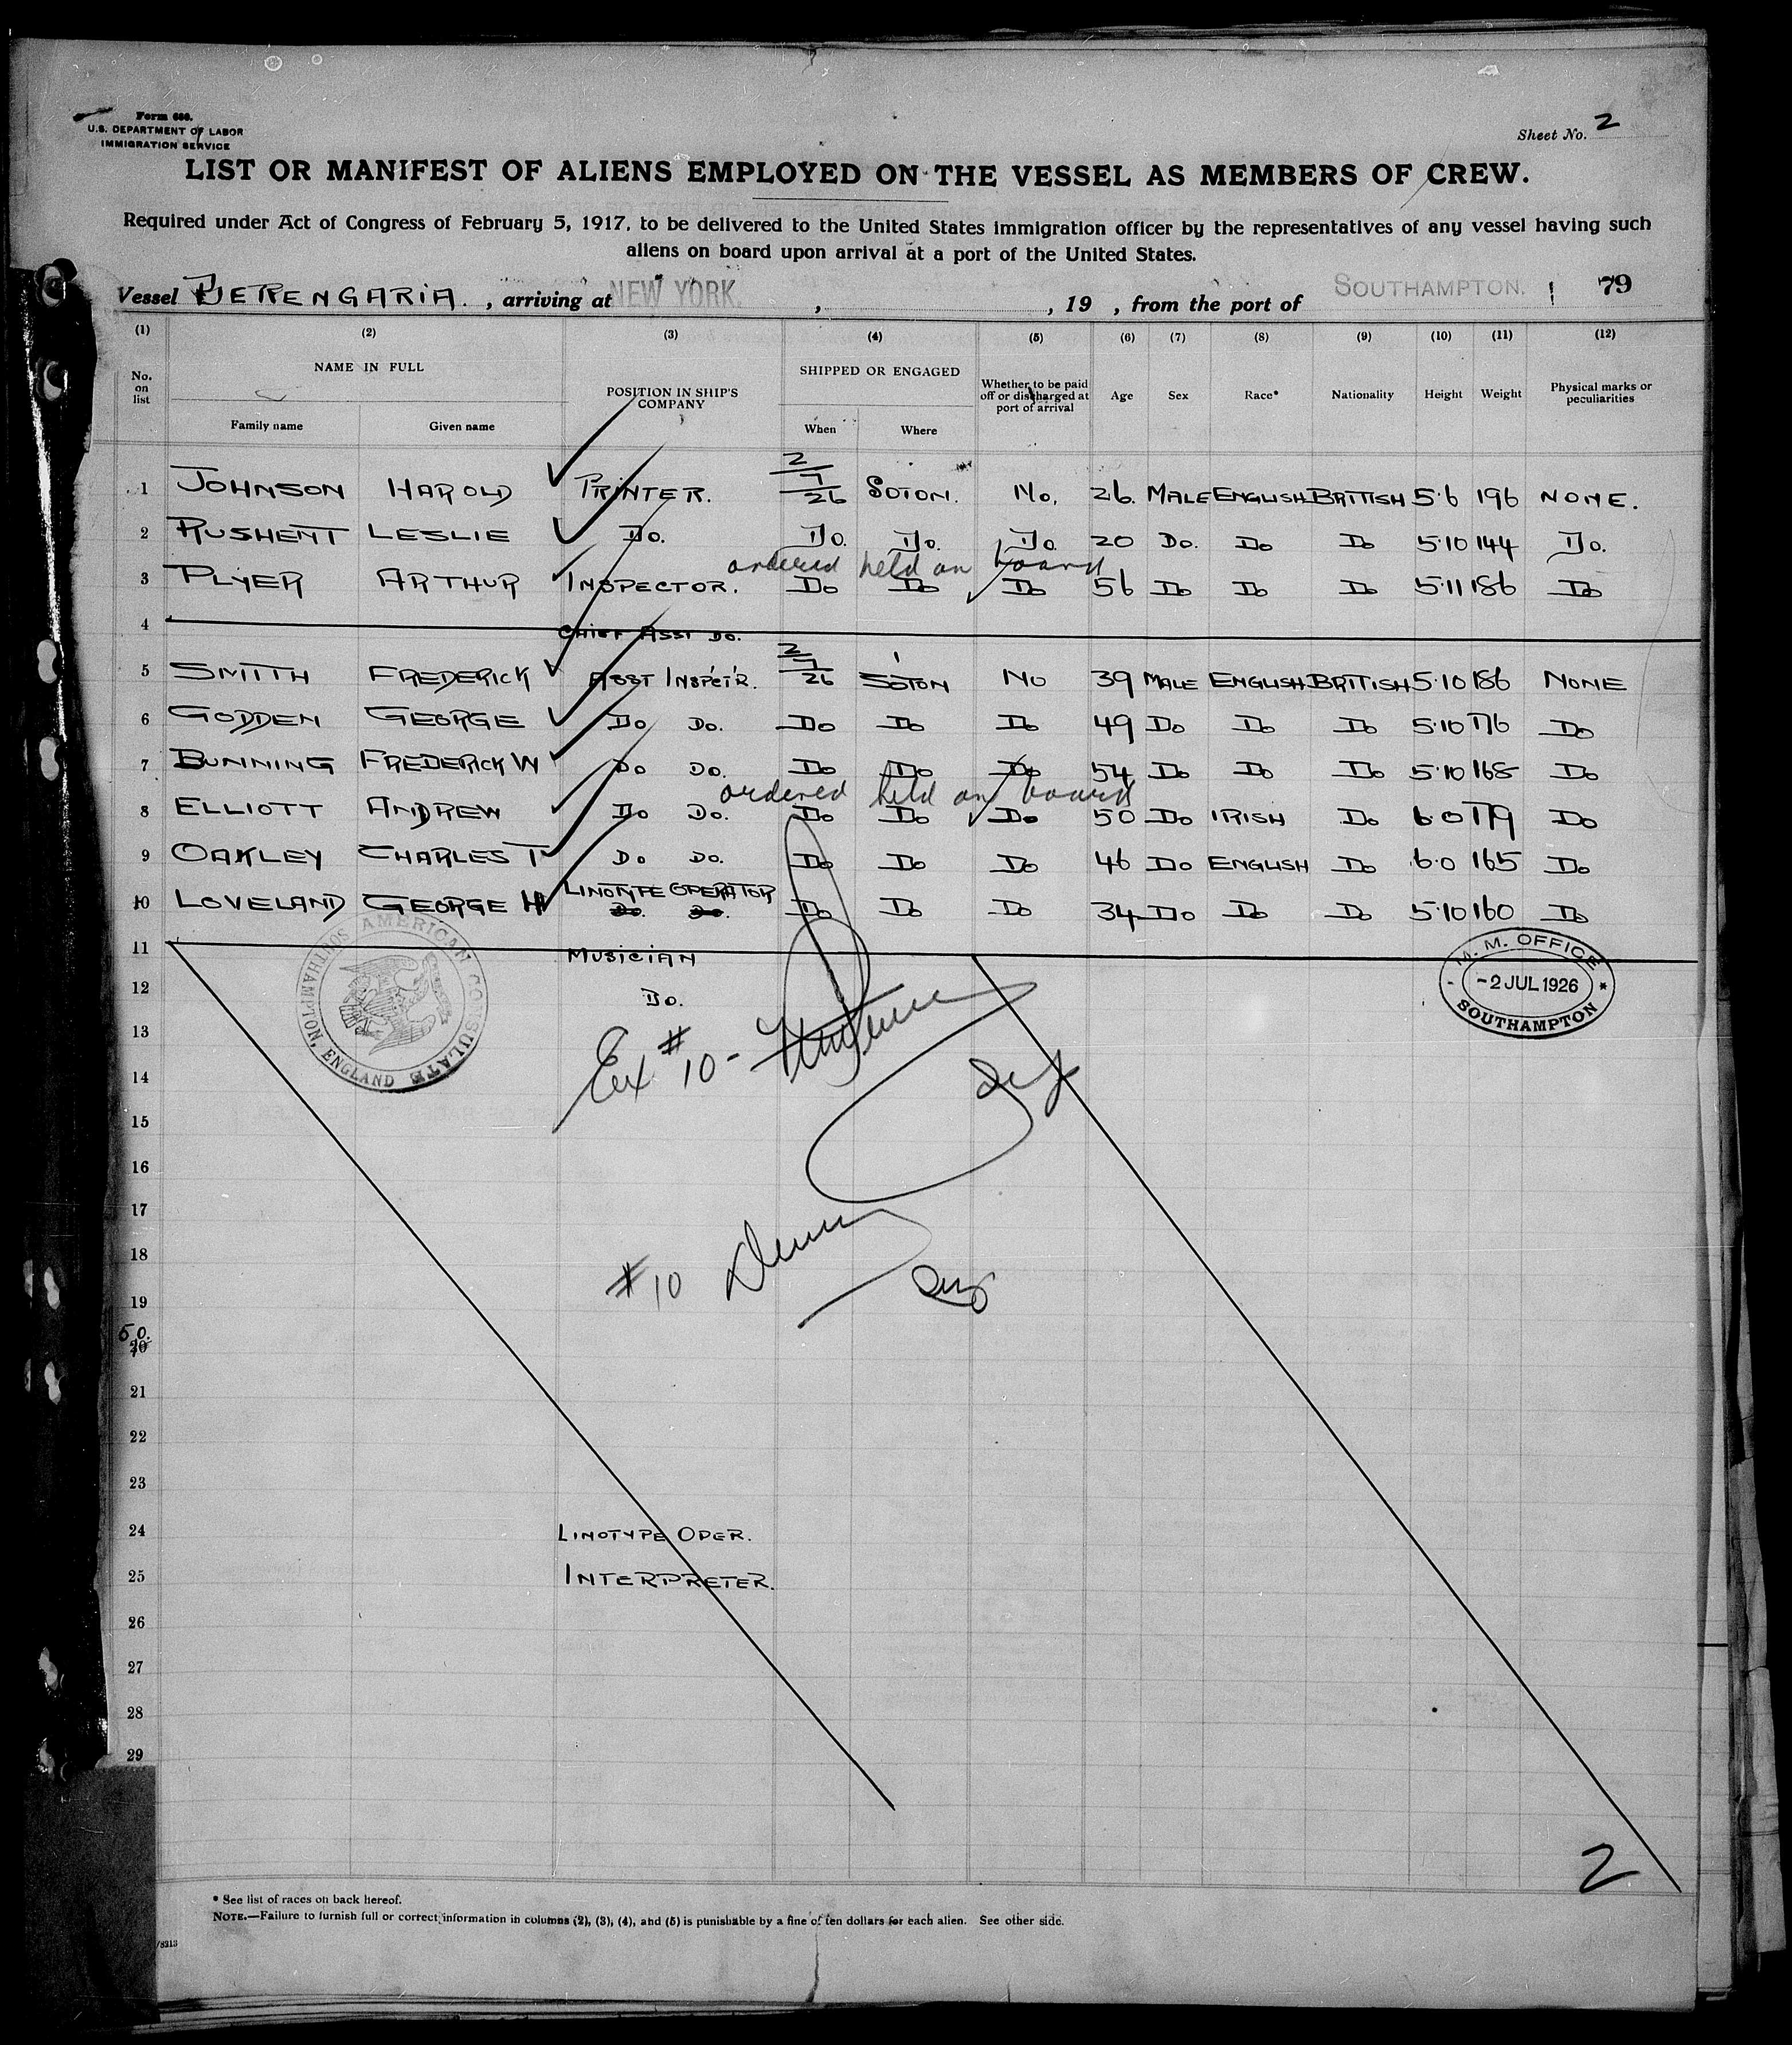 Form 686.
U.S. DEPARTMENT OF LABOR
IMMIGRATION SERVICE
Sheet No. 2
LIST OR MANIFEST OF ALIENS EMPLOYED ON THE VESSEL AS MEMBERS OF CREW.
Required under Act of Congress of February 5, 1917, to be delivered to the United States immigration officer by the representatives of any vessel having such
aliens on board upon arrival at a port of the United States.
Vessel BERENGARIA. , arriving at NEW YORK. , , 19 , from the port of SOUTHAMPTON. 79
(1) (2) (3) (4) (5) (6) (7) (8) (9) (10) (11) (12)
No. on list NAME IN FULL Family name Given name POSITION IN SHIP'S COMPANY SHIPPED OR ENGAGED When Where Whether to be paid off or discharged at port of arrival Age Sex Race* Nationality Height Weight Physical marks or peculiarities
1 JOHNSON HAROLD PRINTER. 2/7/26 SOTON. NO. 26. MALE ENGLISH BRITISH 5·6 196 NONE.
2 RUSHENT LESLIE DO. DO. DO. DO. 20 DO. DO DO 5·10 144 DO.
ordered held on board
3 PLYER ARTHUR INSPECTOR. DO DO DO 56 DO DO DO 5·11 186 DO
4 CHIEF ASST DO.
5 SMITH FREDERICK ASST INSPCT'R. 2/7/26 SOTON NO 39 MALE ENGLISH BRITISH 5·10 186 NONE
6 GODDEN GEORGE DO DO. DO DO DO 49 DO DO DO 5·10 176 DO
7 BUNNING FREDERICK W DO DO. DO DO DO 54 DO DO DO 5·10 168 DO
ordered held on board
8 ELLIOTT ANDREW DO DO. DO DO DO 50 DO IRISH DO 6·0 179 DO
9 OAKLEY CHARLES T DO DO. DO DO DO 46 DO ENGLISH DO 6·0 165 DO
10 LOVELAND GEORGE H LINOTYPE OPERATOR DO. DO. DO DO DO 34 DO DO DO 5·10 160 DO
11 MUSICIAN
12 DO.
AMERICAN CONSULATE SOUTHAMPTON, ENGLAND
M. M. OFFICE
-2 JUL 1926
SOUTHAMPTON
13
Ex #10 -
14
15
16
17
18
#10
19
50.
20
21
22
23
24 LINOTYPE OPER.
25 INTERPRETER.
26
27
28
29
2
* See list of races on back hereof.
NOTE.—Failure to furnish full or correct information in columns (2), (3), (4), and (5) is punishable by a fine of ten dollars for each alien. See other side.
/8213